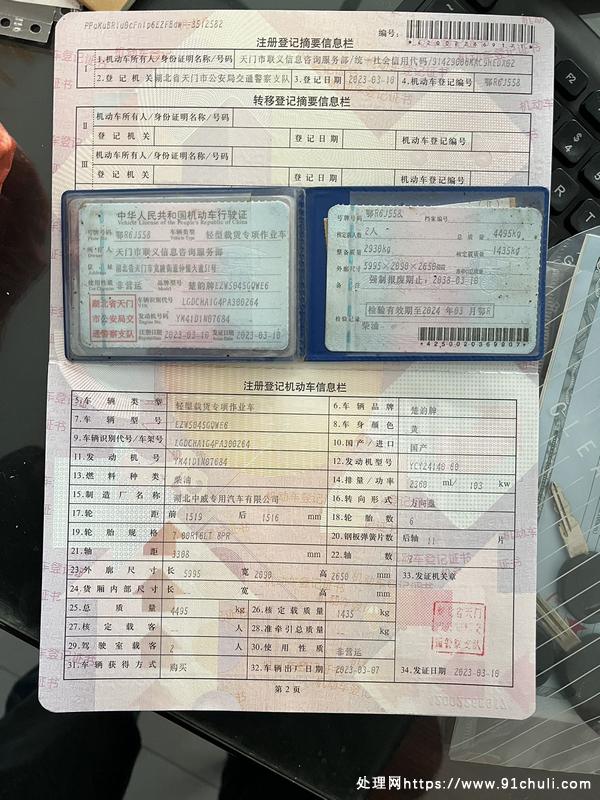 编号:
注册登记摘要信息栏
Ⅰ 1.机动车所有人/身份证明名称/号码 天门市联义信息咨询服务部/统一社会信用代码/
2.登记机关 湖北省天门市公安局交通警察支队 3.登记日期 2023-03-10 4.机动车登记编号 鄂R6J558
转移登记摘要信息栏
Ⅱ 机动车所有人/身份证明名称/号码
登记机关 登记日期 机动车登记编号
Ⅲ 机动车所有人/身份证明名称/号码
登记机关 登记日期 机动车登记编号
中华人民共和国机动车行驶证
Vehicle License of the People's Republic of China
号牌号码 鄂R6J558 车辆类型 轻型载货专项作业车
Plate No. Vehicle Type
天门市联义信息咨询服务部
使用性质 非营运 品牌型号 楚韵牌EZW5045GQWE6
湖北省天门市公安局交通警察支队
车辆识别代号 LGDCHA1G4PA300264
VIN
发动机号码 YK41D1N07684
Engine No.
注册日期 2023-03-10 发证日期 2023-03-10
号牌号码 鄂R6J558 档案编号
核定载人数 2人 总质量 4495kg
整备质量 2930kg 核定载质量 1435kg
外廓尺寸 5995×2090×2650mm
备注 强制报废期止:2038-03-10
检验有效期至2024年03月鄂R
检验记录
柴油
*4250020369807*
注册登记机动车信息栏
5.车辆类型 轻型载货专项作业车 6.车辆品牌 楚韵牌
7.车辆型号 EZW5045GQWE6 8.车身颜色 黄
9.车辆识别代号/车架号 LGDCHA1G4PA300264 10.国产/进口 国产
11.发动机号 YK41D1N07684 12.发动机型号 YCY24140-60
13.燃料种类 柴油 14.排量/功率 2360 ml/ 103 kw
15.制造厂名称 湖北中威专用汽车有限公司 16.转向形式 方向盘
17.轮距 前 1519 后 1516 mm 18.轮胎数 6
19.轮胎规格 7.00R16LT 8PR 20.钢板弹簧片数 后轴 11 片
21.轴距 3308 mm 22.轴数 2
23.外廓尺寸 长 5995 宽 2090 高 2650 mm 33.发证机关章
24.货厢内部尺寸 长 宽 高 mm
25.总质量 4495 kg 26.核定载质量 1435 kg
27.核定载客 -- 人 28.准牵引总质量 -- kg
29.驾驶室载客 2 人 30.使用性质 非营运
31.车辆获得方式 购买 32.车辆出厂日期 2023-03-07 34.发证日期 2023-03-10
第 2 页
处理网https://www.91chuli.com/